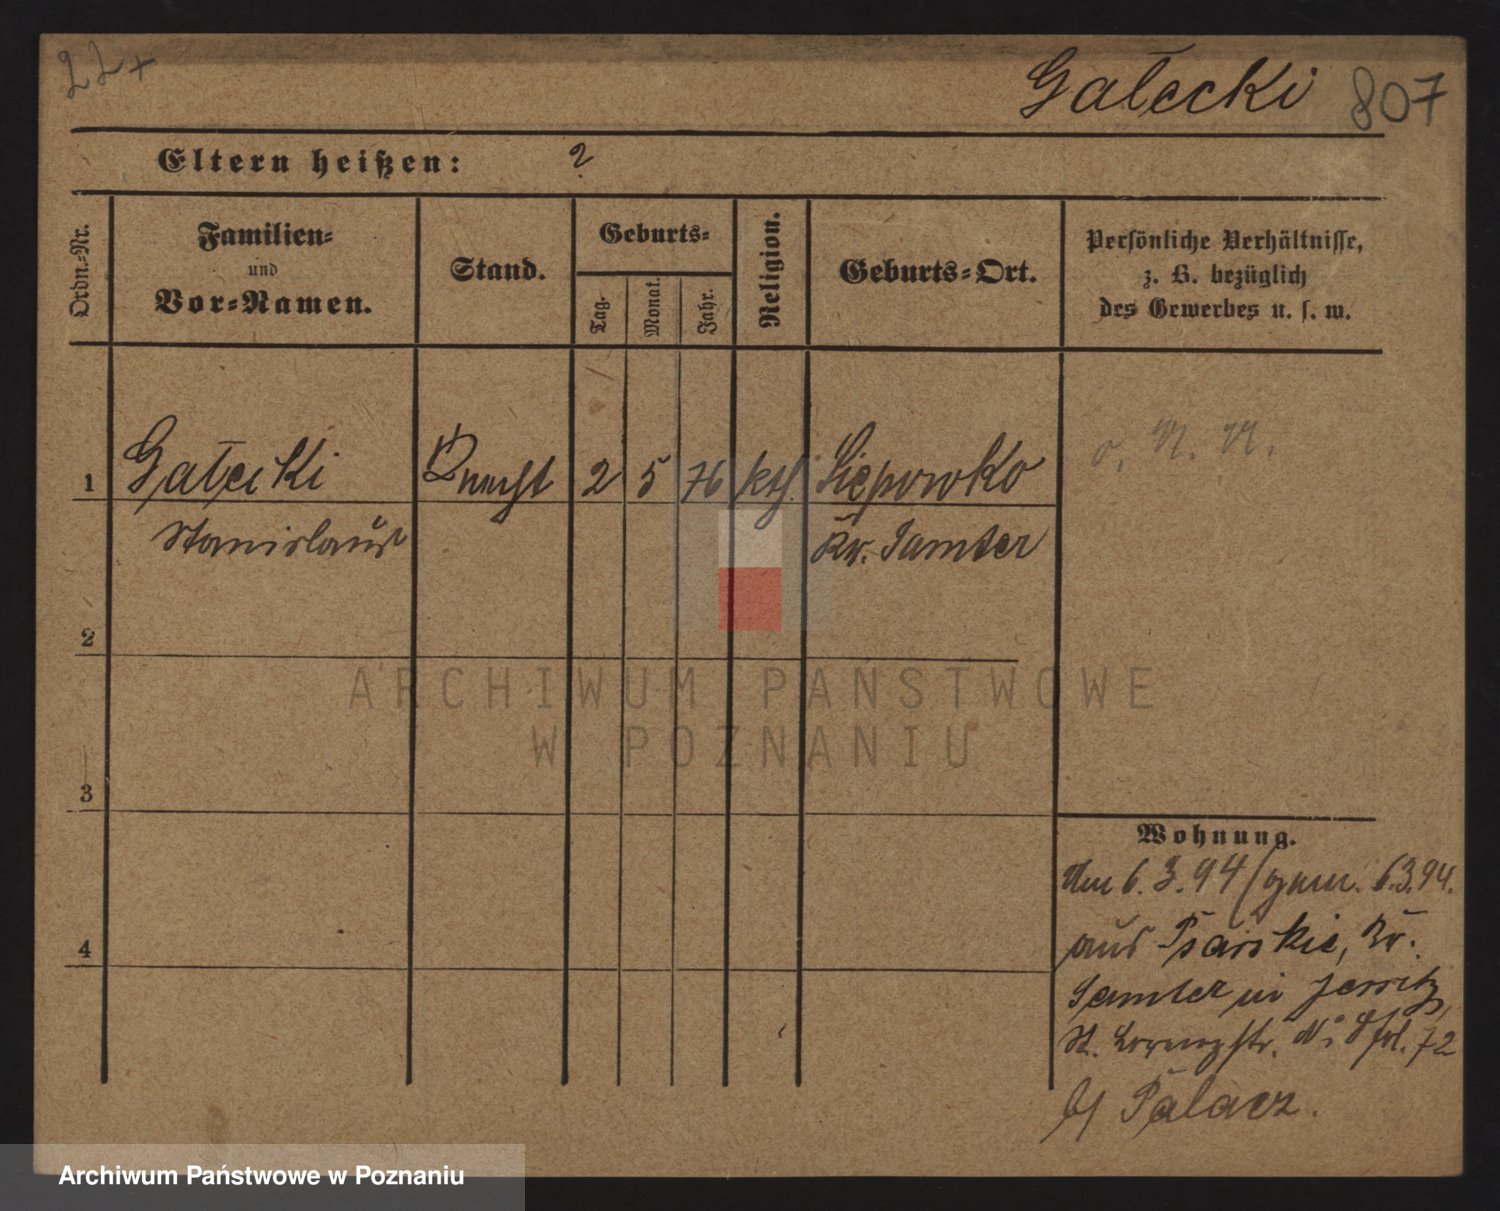 22+
Gałecki 807
Eltern heißen: ?
Ordn.-Nr.
Familien-
und
Vor-Namen.
Stand.
Geburts-
Tag.
Monat.
Jahr.
Religion.
Geburts-Ort.
Persönliche Verhältnisse,
z. B. bezüglich
des Gewerbes u. s. w.
1 Gałecki Knecht 2 5 76 kth. Siepowko o. M. M.
Stanislaus Kr. Samter
2
3
4
Wohnung.
Am 6.3.94 / gem. 6.3.94.
aus Psarskie, Kr.
Samter in Jersitz,
St. Lorenzstr. No 9 fol. 72
b/ Palacz.
ARCHIWUM PAŃSTWOWE
W POZNANIU
Archiwum Państwowe w Poznaniu